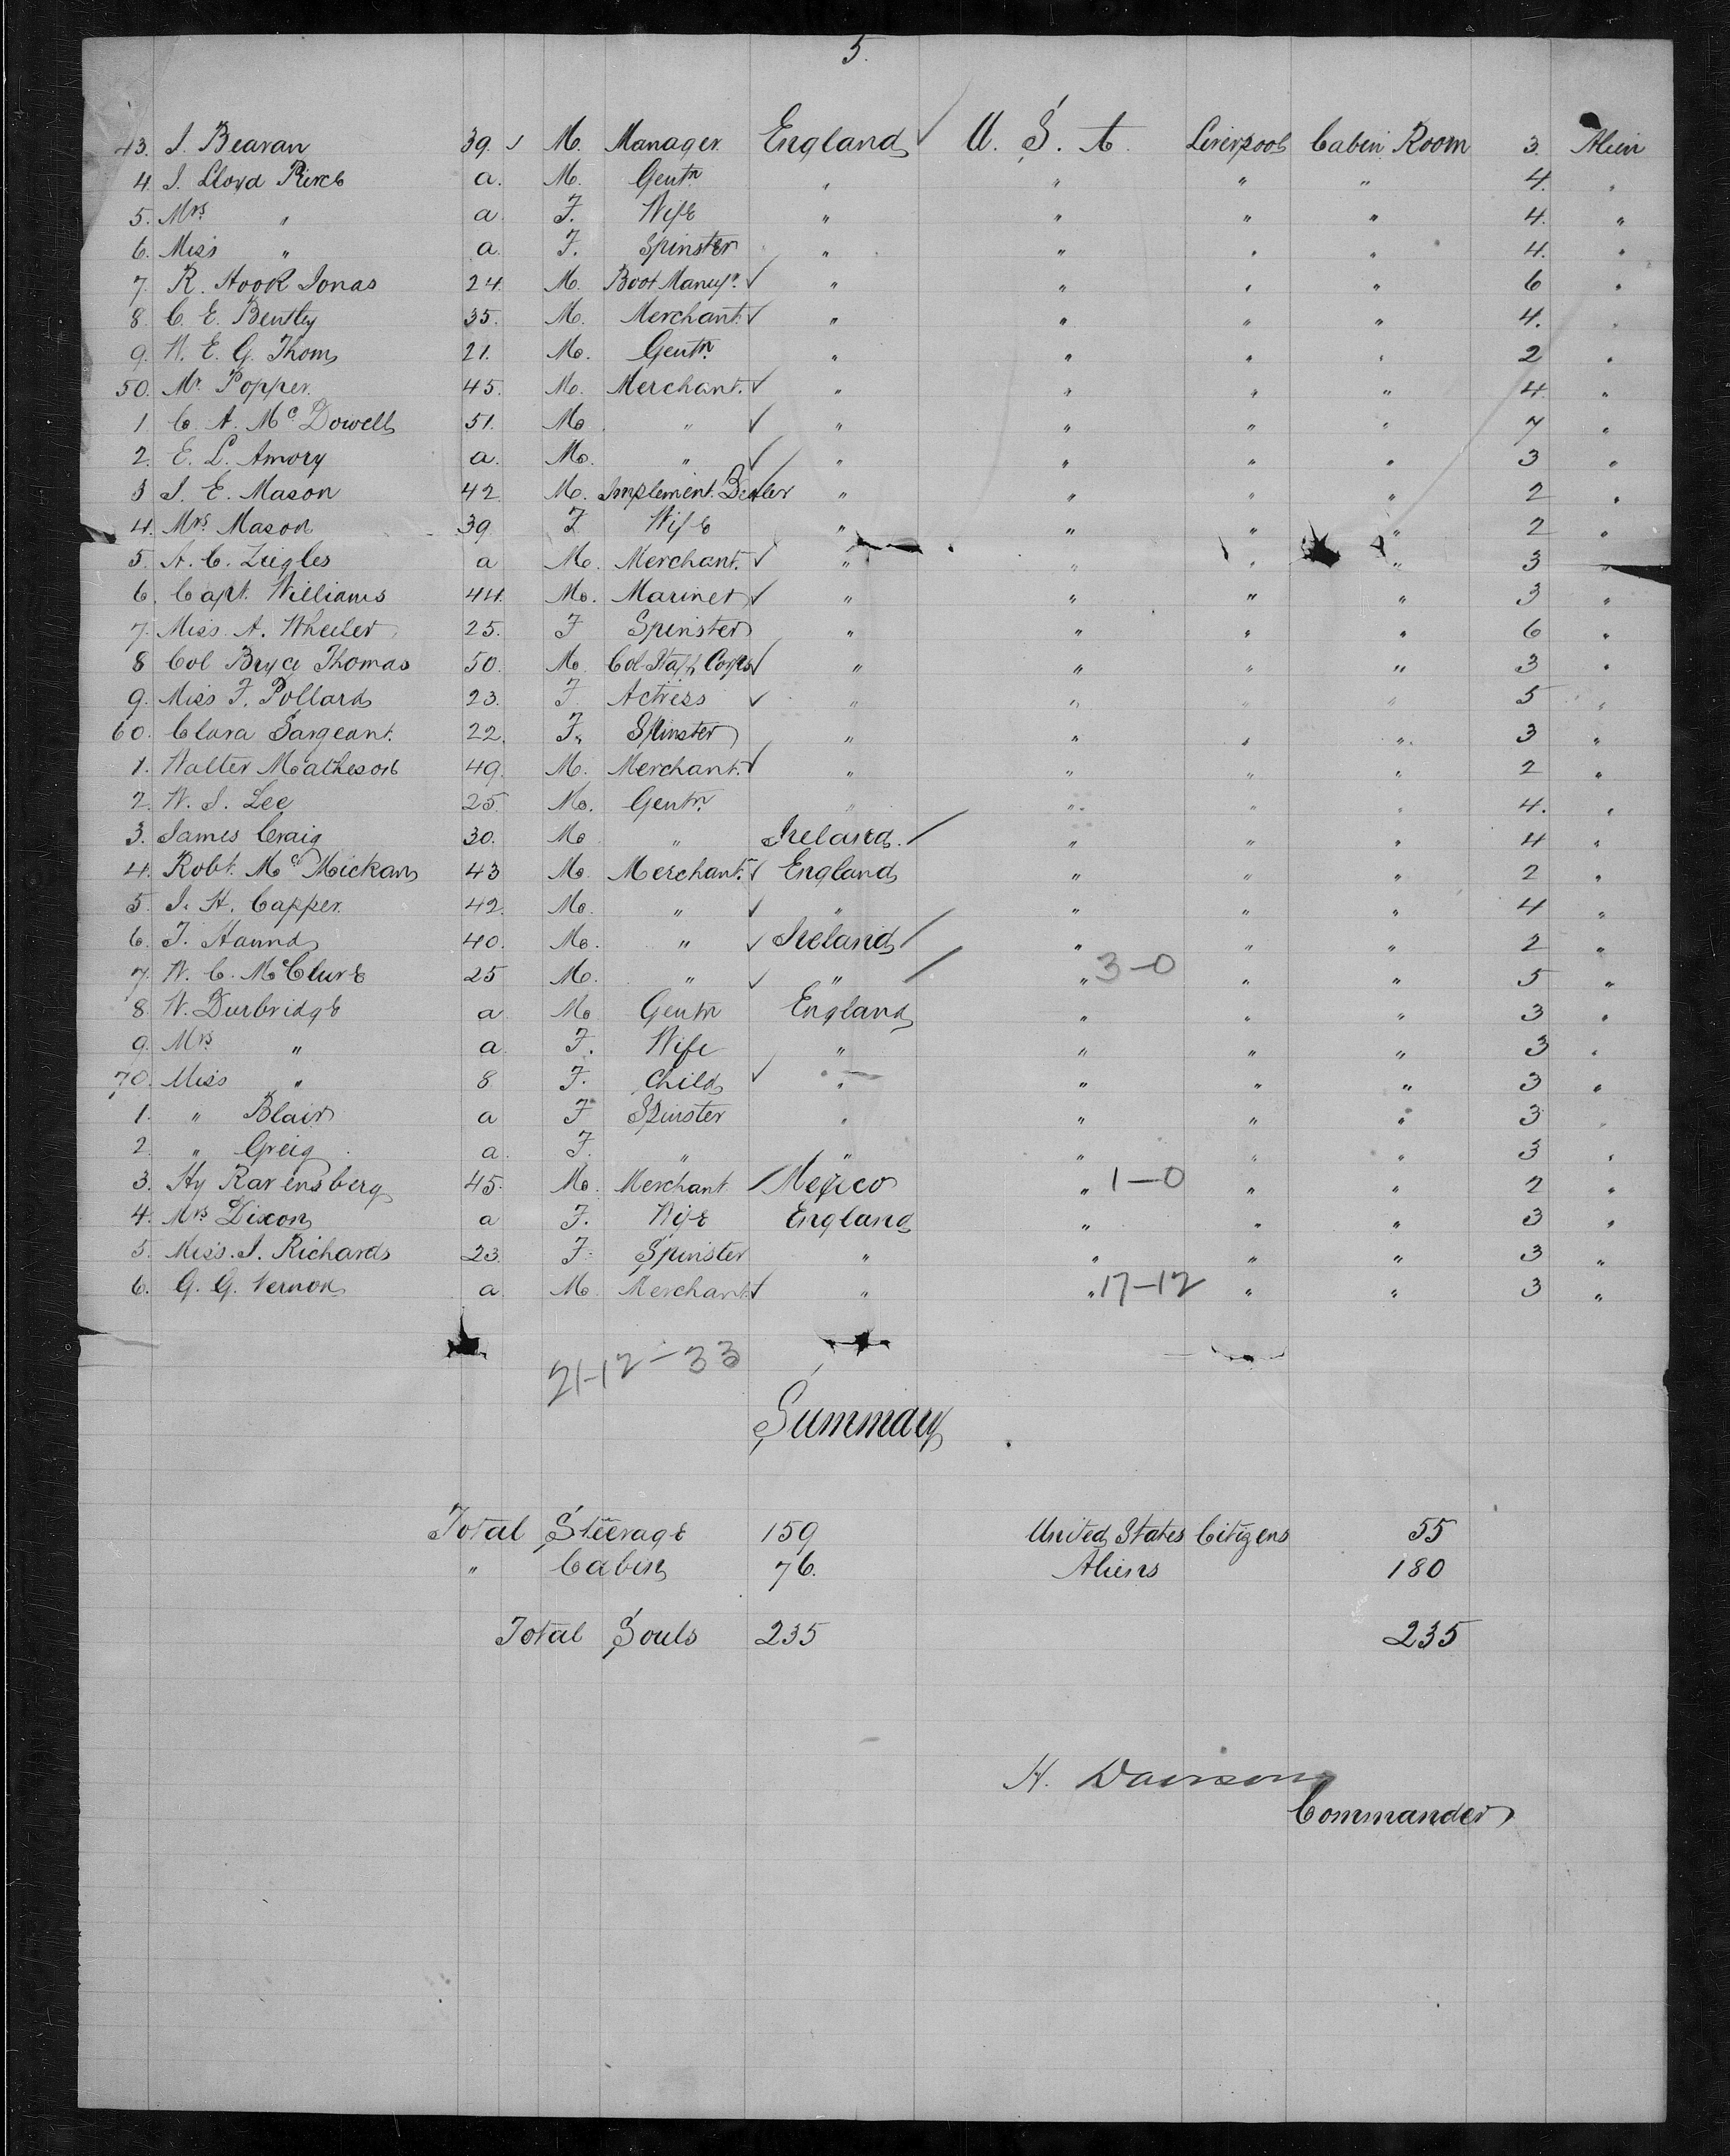 5.
43. J. Bearan 39. M. Manager England U. S. A. Liverpool Cabin Room 3. Alien
4. J. Lloyd Pierce a. M. Gentn " " " " 4. "
5. Mrs " a F. Wife " " " " 4. "
6. Miss " a. F. Spinster " " " " 4. "
7. R. Hook Jonas 24. M. Boot Manufr. " " " " 6 "
8. C. E. Bentley 35. M. Merchant. " " " " 4. "
9. W. E. G. Thom 21. M. Gentn " " " " 2 "
50. Mr. Popper. 45. M. Merchant. " " " " 4. "
1 C. A. McDowell 51. M. " " " " " 7 "
2. E. L. Amory a. M. " " " " " 3 "
3 J. E. Mason 42. M. Implement. Dealer " " " " 2 "
4. Mrs Mason 39. F Wife " " " " 2 "
5. A. C. a M. Merchant. " " " " 3 "
6. Capt. Williams 44. M. Mariner " " " " 3 "
7. Miss. A. Wheeler 25. F Spinster " " " " 6 "
8 Col Bryce Thomas 50. M. Col. Staff Corps " " " " 3 "
9. Miss F. Pollard 23. F Actress " " " " 5 "
60. Clara Sargeant. 22. F. Spinster " " " " 3 "
1. Walter Matheson 49. M. Merchant. " " " " 2 "
2. W. J. Lee 25. M. Gentn " " " " 4. "
3. James Craig 30. M. " Ireland. " " " 4 "
4. Robt. McMickan 43 M. Merchant. England " " " 2 "
5. J. H. Capper. 42. M. " " " " " 4 "
6. T. 40. M. " Ireland " " " 2 "
7. W. C. McClure 25 M. " " " 3-0 " " 5 "
8. W. Durbridge a M. Gentn England " " " 3 "
9. Mrs " a. F. Wife " " " " 3 "
70. Miss " 8. F. Child " " " " 3 "
1. " Blair a F Spinster " " " " 3 "
2. " Greig a. F. " " " " " 3 "
3. Hy Ravensberg 45. M. Merchant Mexico " 1-0 " " 2 "
4. Mrs Dixon a F. Wife England " " " 3 "
5. Miss. J. Richards 23. F. Spinster " " " " 3 "
6. G. G. Vernon a. M. Merchant. " " 17-12 " " 3 "
21-12-33
Summary
Total Steerage 159 United States Citizens 55
" Cabin 76. Aliens 180
Total Souls 235 235
H.
Commander